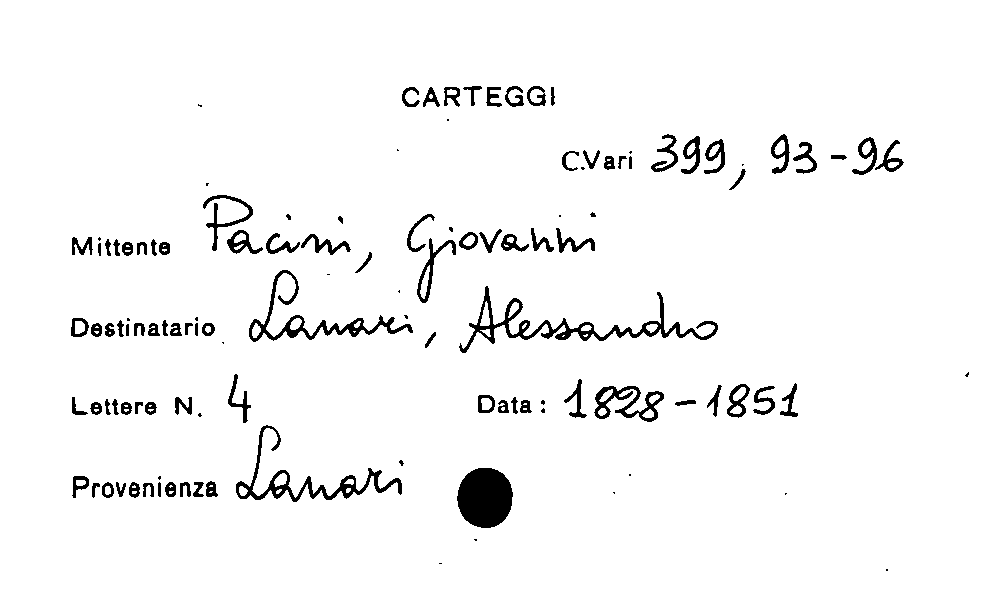 CARTEGGI
C.Vari 399, 93-96
Mittente Pacini, Giovanni
Destinatario Lanari, Alessandro
Lettere N. 4 Data: 1828-1851
Provenienza Lanari